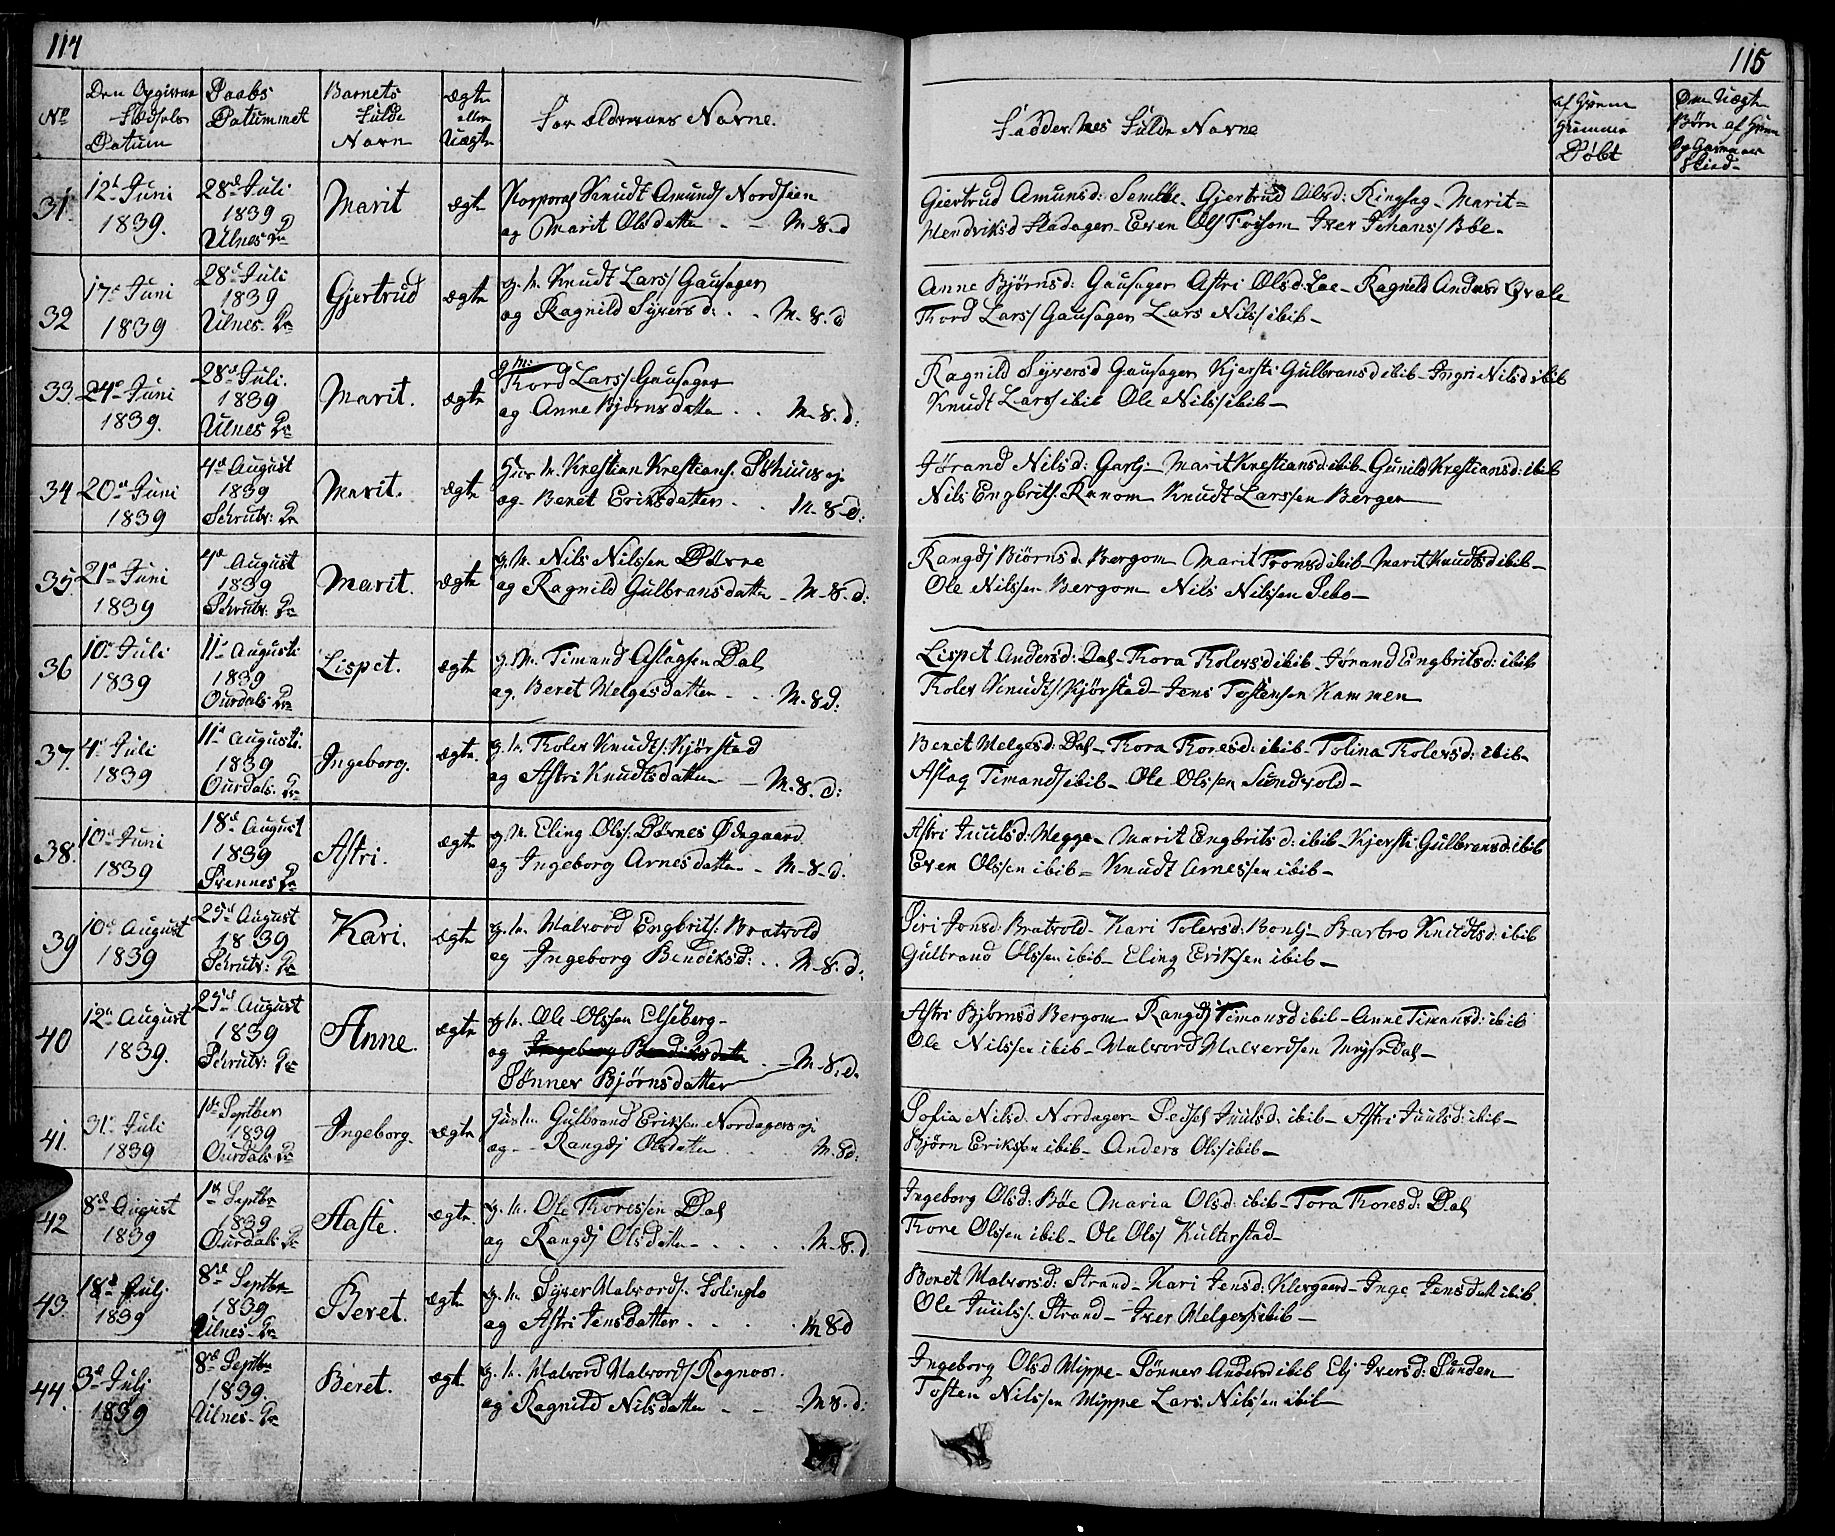 114
115
No
Den Opgivne Fødsels Datum
Daabs Datummet
Barnets Fulde Navn
Ægte eller Uægte
Forældrenes Navne.
Faddernes Fulde Navne
Døbt
Den Uægte Børn af
31 12te Juni 1839. 28de Juli 1839 Ulnes Marit Ægte Korporal Knudt Amunds Nordseen
og Marit Olsdatter - - M-8-d
Giertrud Amunsd: Semble. Gjertrud Olsd: Ringsag - Marit=
Hendriksd Fladagen - Even Ols Fosom Iver Johans/ Bøe.
32 17de Juni 1839 28de Juli 1839 Ulnes Gjertrud Ægte g. M. Knudt Lars/ Gausagen
og Ragnild Syversd: . - M-8-d
Anne Bjørnsd: Gausagen Astri Olsd: Loe - Ragnild Andersd Qvale
Tord Lars/ Gausagen Lars Nils/ ibib -
33. 24de Juni 1839. 28de Juli. 1839 Ulnes Marit. Ægte g M: Tord Lars/ Gausagen
og Anne Bjørnsdatter . . M-8.d:
Ragnild Syversd Gausagen Kjersti Gulbransd ibib - Ingri Nilsd ibib
Knudt Lars/ ibib Ole Nils/ ibib -
34 20de Juni 1839 4de August 1839 Marit. Ægte Huus M. Krestian Krestians/.
og Beret Eriksdatter - . M-8-d:
Jørand Nilsd: Garli - Marit Krestiansd: ibib - Gunild Krestiansd: ibib
Nils Engbrits/ Ranom Knudt Larssen Bergen
35. 21de Juni 1839 4de August 1839 Marit. Ægte g. M. Nils Nilssen Børne
og Ragnild Gulbransdatter - M-8-d:
Rangdj Biørnsd: Bergom Marit Tronsd ibib - Marit Knudtsd ibib -
Ole Nilssen Bergom Nils Nilssen Sebo -
36 10de Juli 1839 11te Augusti 1839 Ourdals Lispet. Ægte g. M. Timand Aslagsen Dal
og. Beret Helgesdatter - . M-8 d:
Lispet Andersd: Dal - Thora Tholevsd ibib - Jørand Engbritsd: ibib
Tholev Knudts/ Kjørstad - Jens Tostensen Kammen
37. 4de Juli 1839 11te Augusti. 1839 Ourdals. Ingeborg. Ægte. g. M. Tholev Knudts/: Kjørstad
og Astri Knudtsdatter - M-8-d:
Beret Helgesd: Dal - Thora Thoresd: ibib - Tolina Tholevsd: ibib -
Aslag Timands/ ibib - Ole Olssen Sundvold -
38. 10de Juni 1839 18de August 1839 Svennes Astri. Ægte g. M. Eling Ols/: Børnes Ødegaard
og Ingeborg Arnesdatter - M-8-d.
Astri Juulsd: Hegge - Marit Engbritsd: ibib - Kjersti Gulbransd: ibib
Even Olssen ibib - Knudt Arnessen ibib -
39 10de August 1839 25de August 1839 Kari. Ægte g. M. Halvord Engbrits/: Bratvold
og Ingeborg Bendiksd: . . M-8-d:
Siri Jonsd: Bratvold - Kari Tolevsd: Bonli - Barbro Knudtsd: ibib
Gulbrand Olssen ibib - Eling Eriksen ibib -
40 12te August 1839. 25de August 1839 Anne. Ægte g. M. Ole Olssen Elseberg -
og Ingeborg Bendiksdatter . - M-8.d.
Sønnev Bjørnsdatter
Astri Bjørnsd Bergom Rangdj Timansd ibib - Anne Timansd: ibib
Ole Nilssen ibib - Halvord Halvordsen Myhrdal -
41. 31te Juli 1839 1ste Septber 1839 Ourdals Ingeborg. Ægte Gulbrand Eriksen Nordagens
og - Rangdj Olsdatter . . M-8d:
Sofia Nilsd. Nordagen - Sedsel Juulsd: ibib - Astri Juulsd: ibib -
Bjørn Eriksen ibib - Anders Ols/ ibib -
42 8de August 1839 1ste Septbr 1839 Ourdals Aaste. Ægte. g. M. Ole Thoressen Dal
og Rangdj Olsdatter - . . . M-8-d.
Ingeborg Olsd: Bøe Maria Olsd: ibib - Tora Thoresd: Dal
Thore Olssen ibib - Ole Ols/ Kulterstad -
43. 18de Julj 1839 8de Septbr 1839 Ulnes - Beret. Ægte g. M. Syver Halvords/.
og Astri Jensdatter . . . . M 8-d
Beret Halvorsd: Strand - Kari Jensd: Klevgaard - Inge Jensdatt ibib.
Ole Juuls/. Strand - Iver Helges/ ibib -
44. 3de Julj 1839 8de Septbr 1839. Ulnes - Beret. Ægte g. M. Halvord Halvords/ Ragnos.
og Ragnild Nilsdatter - - M-8-d:
Ingeborg Olsd Hippe - Sønnev Andersd ibib Eli Iversd: Sunden
Tosten Nilssen Hippe Lars. Nilssen ibib